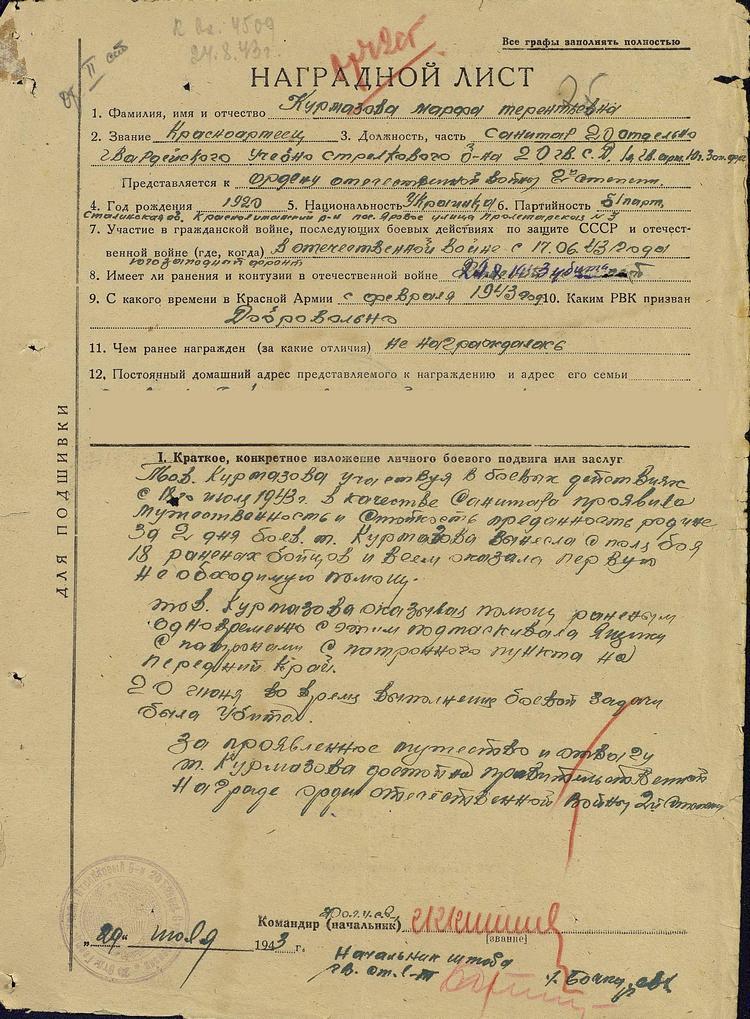 к вх. 4509
24.8.43 г.
Все графы заполнять полностью
НАГРАДНОЙ ЛИСТ
1. Фамилия, имя и отчество Курмазова марфа терентьевна
2. Звание Красноармеец 3. Должность, часть Санитар 20 отдельно
гвардейского учебно стрелкового б-на 20 гв. С.Д.
Представляется к ордену отечественной войны 2й степени
4. Год рождения 1920 5. Национальность Украинка 6. Партийность б/парт.
Сталинская об. Краснолиманский р-н пос. Яровое улица Пролетарская № 3
7. Участие в гражданской войне, последующих боевых действиях по защите СССР и отечест-
венной войне (где, когда) в отечественной войне с 17.06.43 года
югозападной фронт
8. Имеет ли ранения и контузии в отечественной войне
9. С какого времени в Красной Армии с февраля 1943 год 10. Каким РВК призван
Добровольно
11. Чем ранее награжден (за какие отличия) не награждалась
12. Постоянный домашний адрес представляемого к награждению и адрес его семьи
ДЛЯ ПОДШИВКИ
I. Краткое, конкретное изложение личного боевого подвига или заслуг
Тов. Курмазова участвуя в боевых действиях
с 18го июля 1943 г. в качестве Санитара проявила
мужественность и Стойкость преданность родине
За 2 дня боев т. Курмазова вынесла с поля боя
18 раненах бойцов и всем оказала первую
необходимую помощ.
тов. Курмазова оказывая помощ раненым
одновременно с этим подтаскивала ящики
с патронами с патронного пункта на
передний край.
20 июня во время выполнение боевой задачи
была убита.
За проявленное мужество и отвагу
т. Курмазова достойна правительственной
награде орден отечественной войны 2й степени
Командир (начальник)
[звание]
„29" июля 1943 г.
Начальник штаба